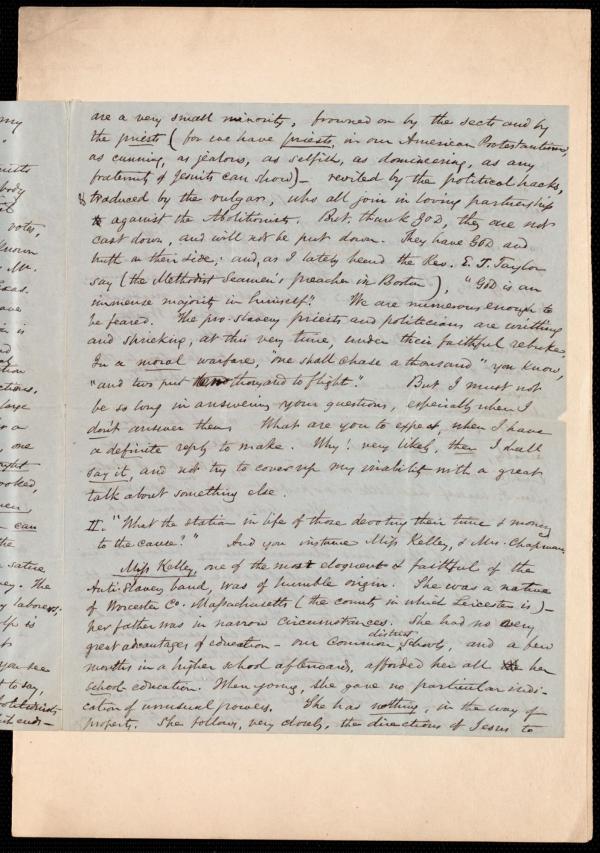 are a very small minority, frowned on by the sects and by
the priests (for we have priests, in our American Protestantism,
as cunning, as jealous, as selfish, as domineering, as any
fraternity of Jesuits can show) – reviled by the political hacks,
& traduced by the vulgar, who all join in loving partnership
against the Abolitionists. But thank God, they are not
cast down, and will not be put down. They have God and
truth on their side; and, as I lately heard the Rev. E. T. Taylor
say (the Methodist Seamen's preacher in Boston), "God is an
immense majority in himself." We are numerous enough to
be feared. The pro-slavery priests and politicians are writhing
and shrieking, at this very time, under their faithful rebuke.
In a moral warfare, "one shall chase a thousand" you know,
"and two put ten thousand to flight." But I must not
be so long in answering your questions, especially when I
don't answer them. What are you to expect, when I have
a definite reply to make. Why! very likely, then I shall
say it, and not try to cover up my inability with a great
talk about something else.
II. "What the station in life of those devoting their time & money
to the cause?" And you instance Miss Kelley, & Mrs. Chapman.
Miss Kelley, one of the most eloquent & faithful of the
Anti-Slavery band, was of humble origin. She was a native
of Worcester Co. Massachusetts (the county in which Leicester is) –
her father was in narrow circumstances. She had no very
great advantages of education – our common district schools, and a few
months in a higher school afterwards, afforded her all her
school education. When young, she gave no particular indi-
cation of unusual powers. She has nothing, in the way of
property. She follows, very closely, the directions of Jesus to
my
body
votes,
known
Mr.
is
large
or a
one
looked,
can
the
The
labors;
is
you see
to say,